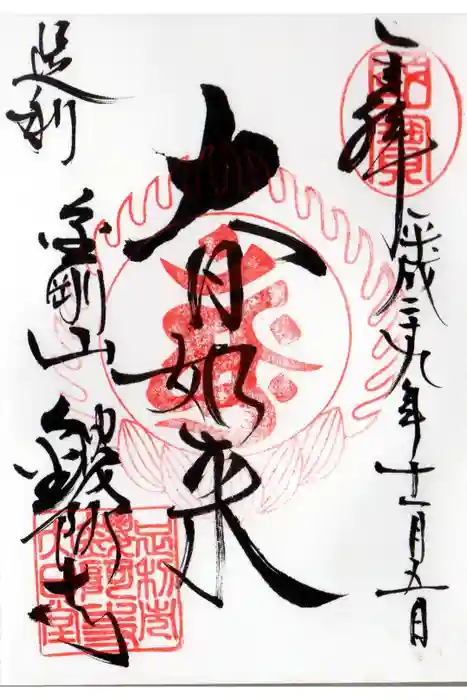 奉拝 平成二十九年十一月五日
大日如来
足利 金剛山 鑁阿寺